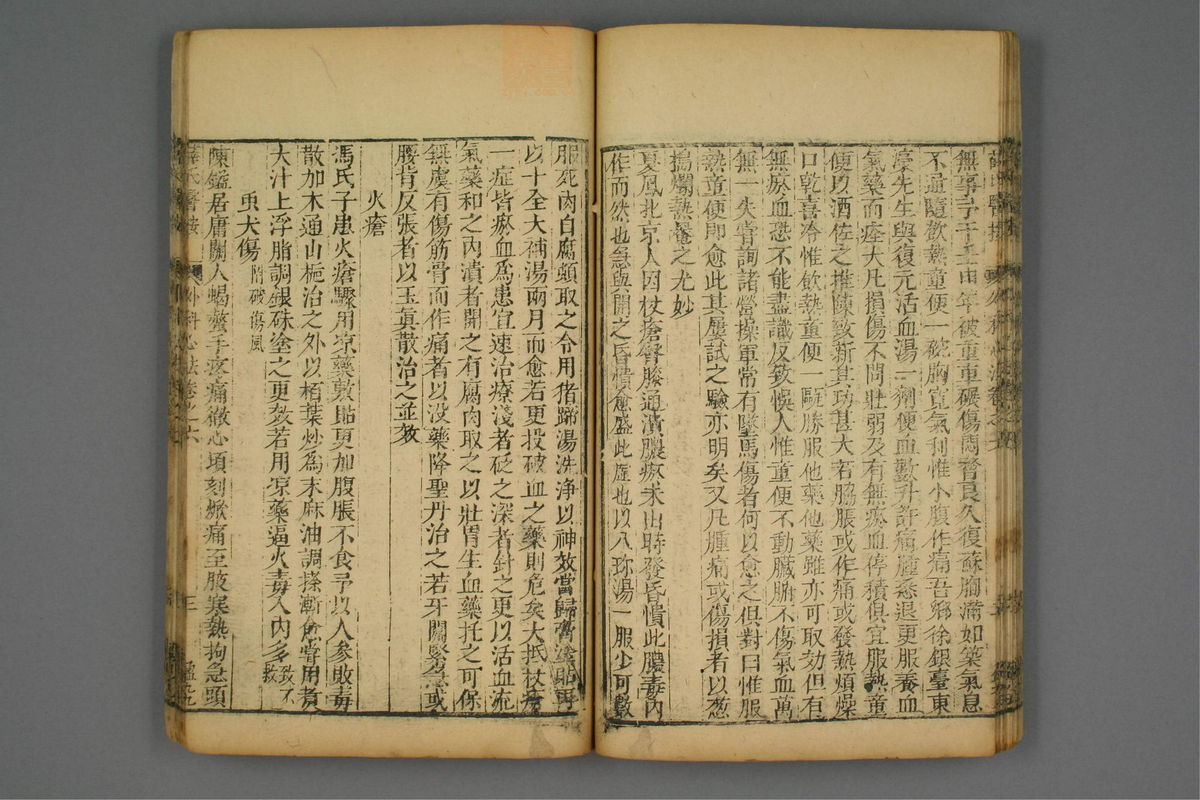 無事予于壬申年被重車碾傷悶瞀良久復蘇胸滿如築氣息
不通隨飲熱童便一碗胸寬氣利惟小腹作痛吾鄉徐銀臺東
濠先生與復元活血湯一劑便血數升許痛腫悉退更服養血
氣藥而痊大凡損傷不問壯弱及有無瘀血停積俱宜服熱童
便以酒佐之推陳致新其功甚大若脇脹或作痛或發熱煩燥
口乾喜冷惟飲熱童便一甌勝服他藥他藥雖亦可取効但有
無瘀血恐不能盡識反致悞人惟童便不動臟腑不傷氣血萬
無一失嘗詢諸營操軍常有墜馬傷者何以愈之俱對曰惟服
熱童便即愈此其屢試之驗亦明矣又凡腫痛或傷損者以葱
搗爛熱罨之尤妙
夏鳳北京人因杖瘡臀膝通潰膿瘀未出時發昏憒此膿毒內
作而然也急與開之昏憒愈盛此虛也以八珍湯一服少可數
服死肉自腐頓取之令用猪蹄湯洗淨以神效當歸膏塗貼再
以十全大補湯兩月而愈若更投破血之藥則危矣大抵杖瘡
一症皆瘀血爲患宜速治療淺者砭之深者針之更以活血流
氣藥和之內潰者開之有腐肉取之以壯胃生血藥托之可保
無虞有傷筋骨而作痛者以没藥降聖丹治之若牙關緊急或
腰背反張者以玉眞散治之並效
火瘡
馮氏子患火瘡驟用凉藥敷貼更加腹脹不食予以人參敗毒
散加木通山梔治之外以栢葉炒爲末麻油調搽漸愈嘗用煮
大汁上浮脂調銀硃塗之更效若用凉藥逼火毒入內多致不救
虫犬傷 附破傷風
陳鎰居庸關人蝎螫手疼痛徹心頃刻㷁痛至腋寒熱拘急頭
薛氏醫按 外科心法卷之六 三